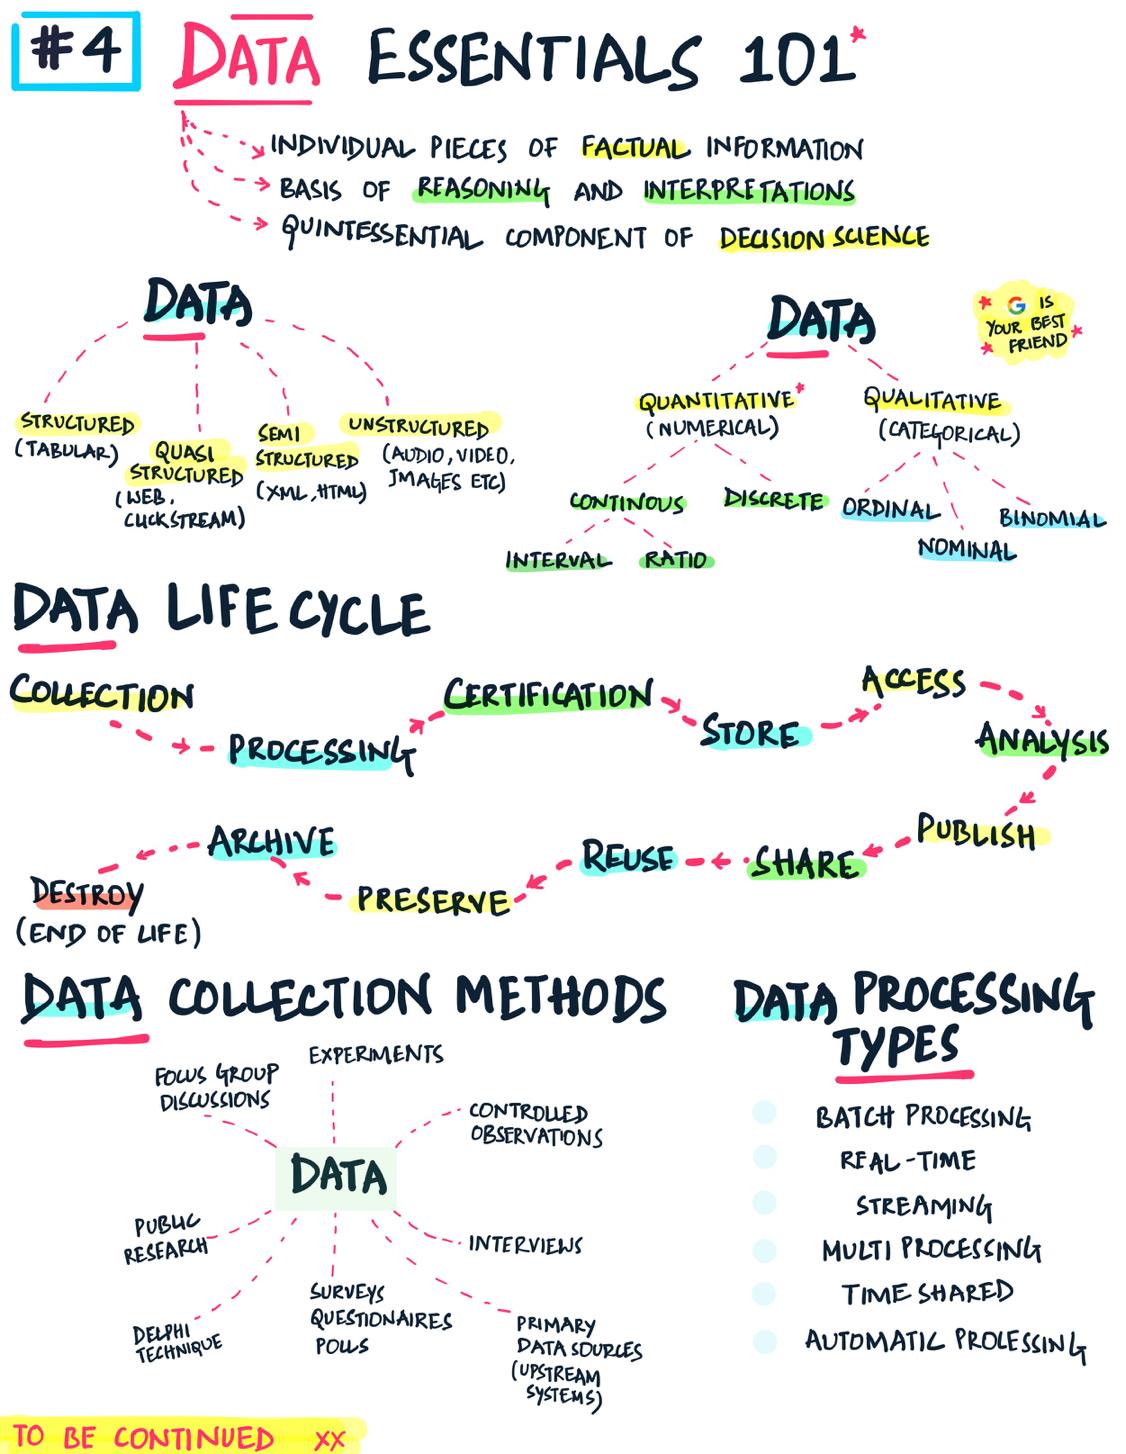 #4 DATA ESSENTIALS 101*
INDIVIDUAL PIECES OF FACTUAL INFORMATION
BASIS OF REASONING AND INTERPRETATIONS
QUINTESSENTIAL COMPONENT OF DECISION SCIENCE
DATA
STRUCTURED
(TABULAR)
QUASI
STRUCTURED
(WEB,
CLICKSTREAM)
SEMI
STRUCTURED
(XML, HTML)
UNSTRUCTURED
(AUDIO, VIDEO,
IMAGES ETC)
DATA
G IS
YOUR BEST
FRIEND
QUANTITATIVE*
(NUMERICAL)
QUALITATIVE
(CATEGORICAL)
CONTINOUS
DISCRETE
INTERVAL
RATIO
ORDINAL
NOMINAL
BINOMIAL
DATA LIFE CYCLE
COLLECTION
PROCESSING
CERTIFICATION
STORE
ACCESS
ANALYSIS
PUBLISH
SHARE
REUSE
PRESERVE
ARCHIVE
DESTROY
(END OF LIFE)
DATA COLLECTION METHODS
EXPERIMENTS
FOCUS GROUP
DISCUSSIONS
CONTROLLED
OBSERVATIONS
DATA
PUBLIC
RESEARCH
INTERVIEWS
DELPHI
TECHNIQUE
SURVEYS
QUESTIONAIRES
POLLS
PRIMARY
DATA SOURCES
(UPSTREAM
SYSTEMS)
DATA PROCESSING
TYPES
BATCH PROCESSING
REAL-TIME
STREAMING
MULTI PROCESSING
TIME SHARED
AUTOMATIC PROCESSING
TO BE CONTINUED XX